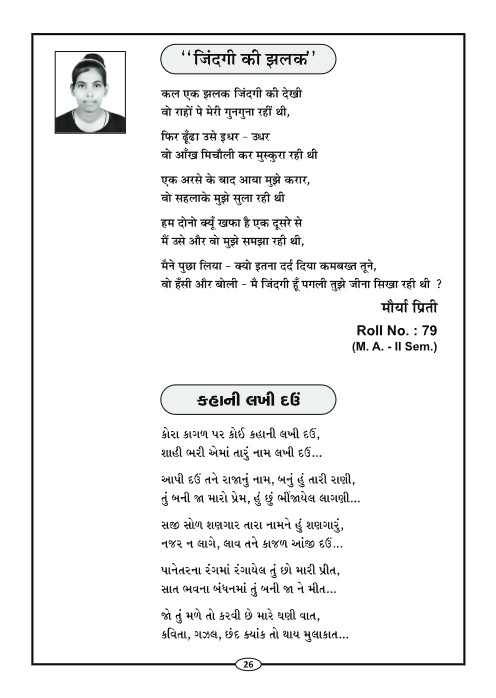 ‘‘जिंदगी की झलक’’
कल एक झलक जिंदगी की देखी
वो राहों पे मेरी गुनगुना रहीं थी,
फिर ढूँढा उसे इधर - उधर
वो आँख मिचौली कर मुस्कुरा रही थी
एक अरसे के बाद आया मुझे करार,
वो सहलाके मुझे सुला रही थी
हम दोनो क्यूँ खफा है एक दूसरे से
मैं उसे और वो मुझे समझा रही थी,
मैने पुछा लिया - क्यो इतना दर्द दिया कमबख्त तूने,
वो हँसी और बोली - मै जिंदगी हूँ पगली तुझे जीना सिखा रही थी ?
मौर्या प्रिती
Roll No. : 79
(M. A. - II Sem.)
કહાની લખી દઉં
કોરા કાગળ પર કોઈ કહાની લખી દઉં,
શાહી ભરી એમાં તારું નામ લખી દઉં...
આપી દઉં તને રાજાનું નામ, બનું હું તારી રાણી,
તું બની જા મારો પ્રેમ, હું છું ભીંજાયેલ લાગણી...
સજી સોળ શણગાર તારા નામને હું શણગારું,
નજર ન લાગે, લાવ તને કાજળ આંજી દઉં...
પાનેતરના રંગમાં રંગાયેલ તું છો મારી પ્રીત,
સાત ભવના બંધનમાં તું બની જા ને મીત...
જો તું મળે તો કરવી છે મારે ઘણી વાત,
કવિતા, ગઝલ, છંદ ક્યાંક તો થાય મુલાકાત...
26